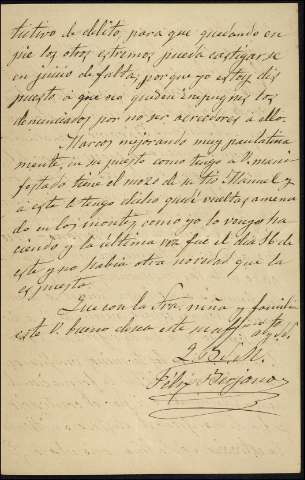 tutivo de delito, para que quedando en
pie los otros estremos pueda castigarse
en juicio de faltas, porque yo estoy dis
puesto á que no queden impugnes los
denunciados por no ser acreedores á ello.
Marcos mejorando muy paulatina
mente, en su puesto como tengo á V. mani
festado tiene el mozo de su tio Manuel y
á este le tengo dicho que dé vueltas amenu
do en los montes, como yo lo vengo ha
ciendo y la última vez fue el dia 16 de
este y no habia otra novedad que la
espuesta.
Que con la Sra. niña y familia
esté V. bueno desea este su affmo
Q. B. S. M.
Félix Berjano